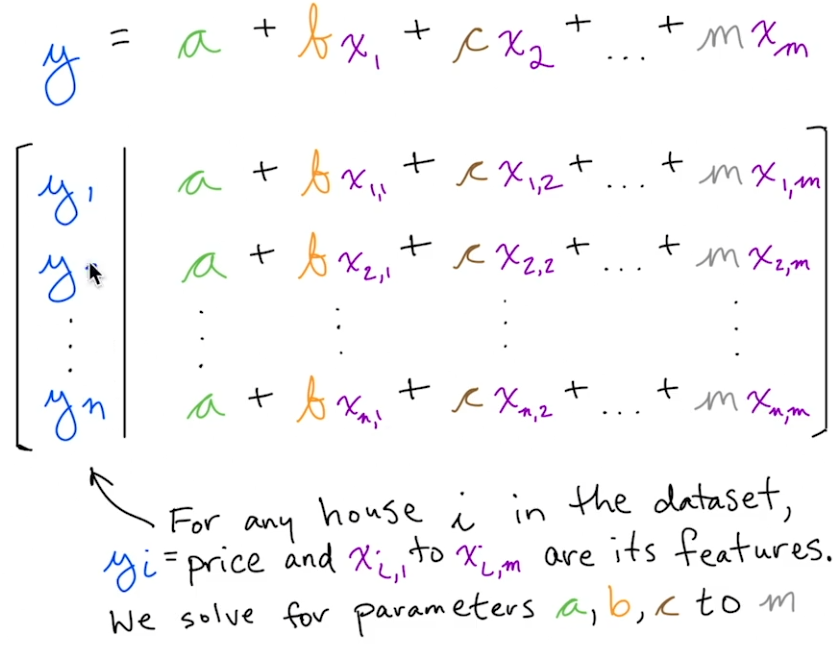 y = a + b x₁ + c x₂ + ... + m xₘ
y₁ | a + b x₁,₁ + c x₁,₂ + ... + m x₁,ₘ
y | a + b x₂,₁ + c x₂,₂ + ... + m x₂,ₘ
⋮ ⋮ ⋮ ⋮ ⋮
yₙ | a + b xₙ,₁ + c xₙ,₂ + ... + m xₙ,ₘ
For any house i in the dataset,
yᵢ = price and xᵢ,₁ to xᵢ,ₘ are its features.
We solve for parameters a, b, c to m